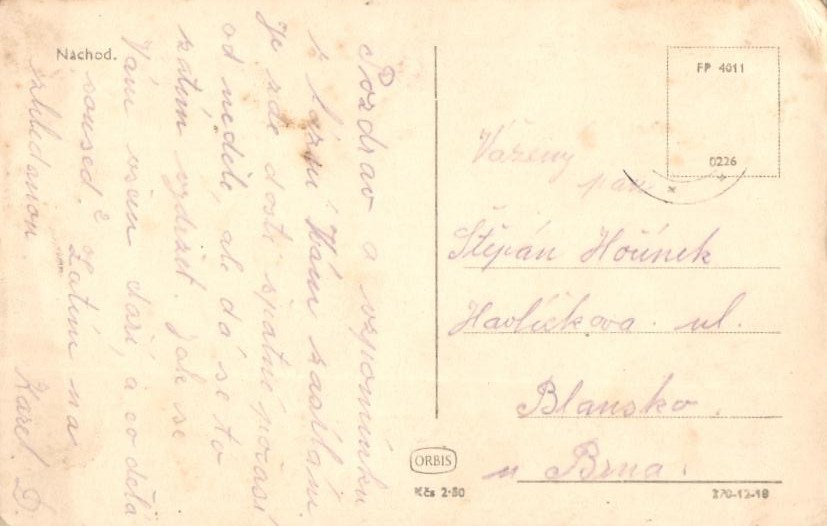 Náchod.
Pozdrav a vzpomínku
z lázní Vám zasílám.
Je zde dosti špatné počasí
od neděle, ale dá se to
zatím vydržet. Jak se
Vám všem daří, a co dělá
soused? Zatím na
shledanou
Karel D.
FP 4011
0226
Vážený
pan
Štěpán Hořínek
Havlíčkova ul.
Blansko
u Brna.
ORBIS
Kčs 2·50
270-12-18